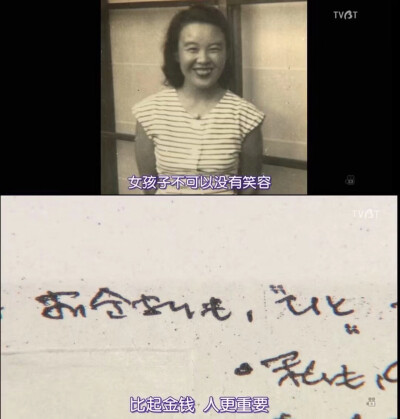 TVBT
女孩子不可以没有笑容
TVBT
お金よりも、〝ひと〟
・私も、
比起金钱 人更重要